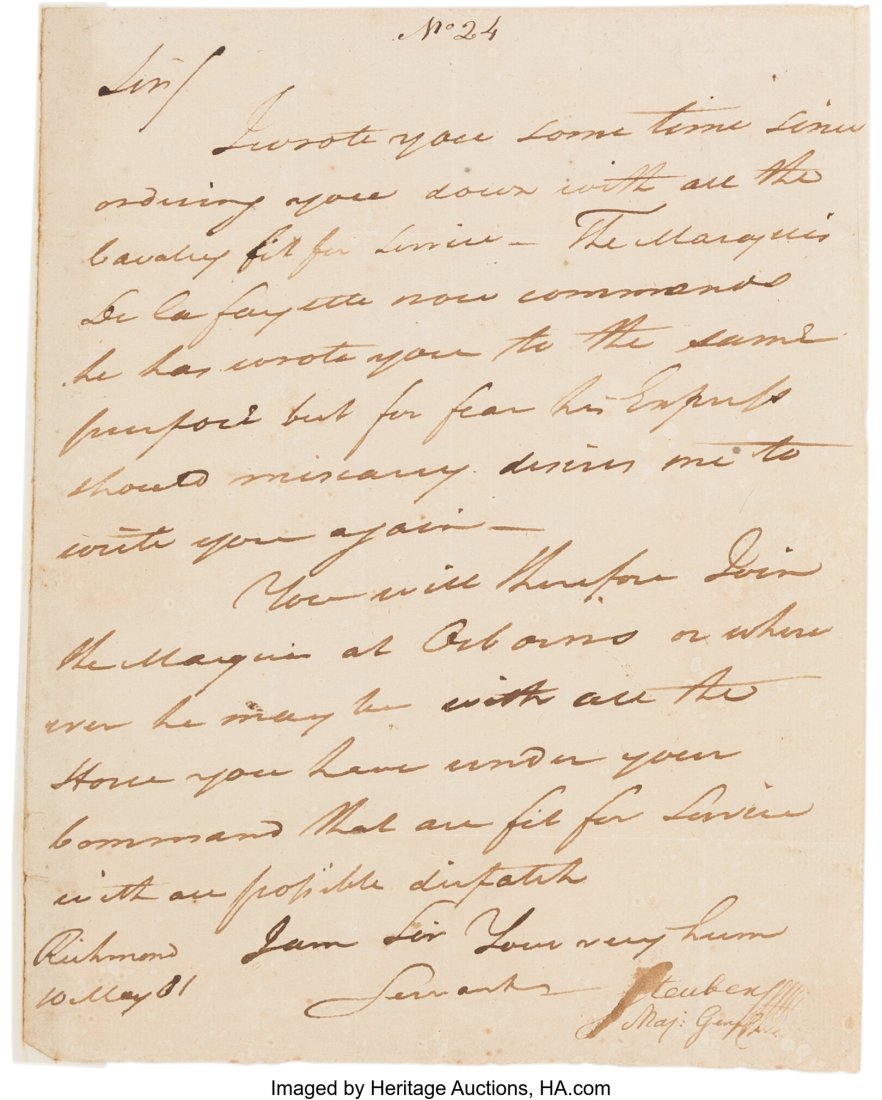 No 24
Sir/
I wrote you some time since
ordering you down with all the
Cavalry fit for Service — The Marquis
De la fayette now commands
he has wrote you to the same
purpose but for fear his Express
should miscarry desires me to
write you again —
You will therefore Join
the Marquis at Osborns or where
ever he may be with all the
Horse you have under your
Command that are fit for Service
with all possible dispatch
Richmond I am Sir Your very hum
10 May 81 Servant
Steuben
Maj: Genl
Imaged by Heritage Auctions, HA.com